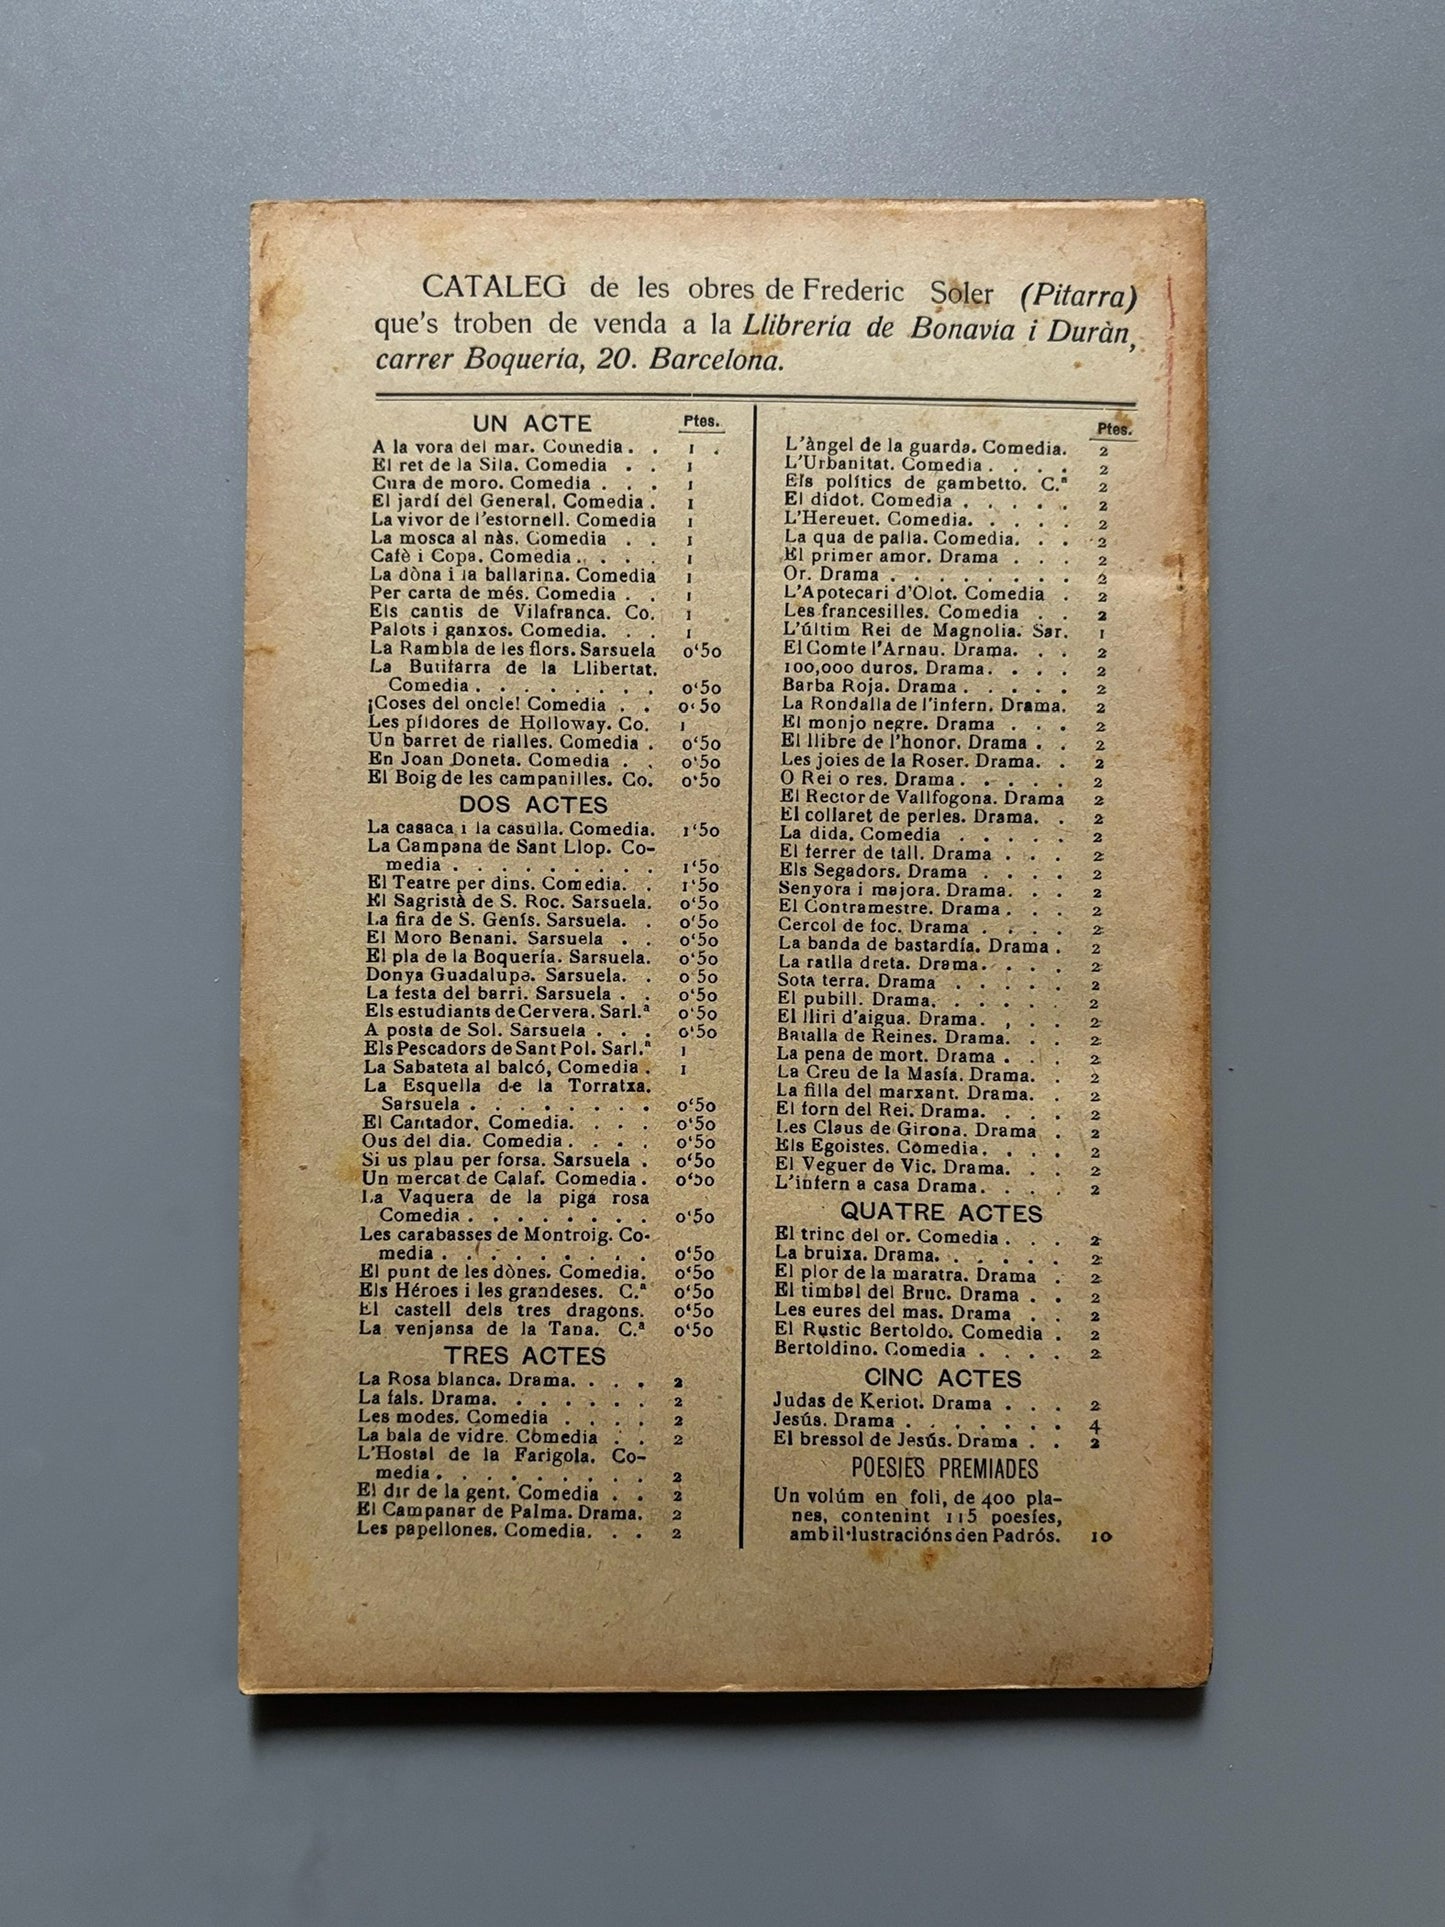 CATALEG de les obres de Frederic Soler (Pitarra)
que's troben de venda a la Llibreria de Bonavia i Duràn,
carrer Boqueria, 20. Barcelona.
UN ACTE Ptes.
A la vora del mar. Comedia . . 1
El ret de la Sila. Comedia . . 1
Cura de moro. Comedia . . . 1
El jardí del General. Comedia . 1
La vivor de l'estornell. Comedia 1
La mosca al nàs. Comedia . . 1
Cafè i Copa. Comedia . . . . 1
La dòna i la ballarina. Comedia 1
Per carta de més. Comedia . . 1
Els cantis de Vilafranca. Co. 1
Palots i ganxos. Comedia. . . 1
La Rambla de les flors. Sarsuela 0'50
La Butifarra de la Llibertat.
Comedia . . . . . . . . 0'50
¡Coses del oncle! Comedia . . 0'50
Les píldores de Holloway. Co. 1
Un barret de rialles. Comedia . 0'50
En Joan Doneta. Comedia . . 0'50
El Boig de les campanilles. Co. 0'50
DOS ACTES
La casaca i la casulla. Comedia. 1'50
La Campana de Sant Llop. Co-
media . . . . . . . . . 1'50
El Teatre per dins. Comedia. . 1'50
El Sagristà de S. Roc. Sarsuela. 0'50
La fira de S. Genís. Sarsuela. . 0'50
El Moro Benani. Sarsuela . . 0'50
El pla de la Boquería. Sarsuela. 0'50
Donya Guadalupe. Sarsuela. . 0 50
La festa del barri. Sarsuela . . 0'50
Els estudiants de Cervera. Sarl.ª 0'50
A posta de Sol. Sarsuela . . . 0'50
Els Pescadors de Sant Pol. Sarl.ª 1
La Sabateta al balcó, Comedia . 1
La Esquella de la Torratxa.
Sarsuela . . . . . . . . 0'50
El Cantador. Comedia. . . . 0'50
Ous del dia. Comedia . . . . 0'50
Si us plau per forsa. Sarsuela . 0'50
Un mercat de Calaf. Comedia . 0'50
La Vaquera de la piga rosa
Comedia . . . . . . . . 0'50
Les carabasses de Montroig. Co-
media . . . . . . . . . 0'50
El punt de les dònes. Comedia. 0'50
Els Héroes i les grandeses. C.ª 0'50
El castell dels tres dragons. 0'50
La venjansa de la Tana. C.ª 0'50
TRES ACTES
La Rosa blanca. Drama. . . . 2
La fals. Drama. . . . . . . 2
Les modes. Comedia . . . . 2
La bala de vidre. Comedia . . 2
L'Hostal de la Farigola. Co-
media . . . . . . . . . 2
El dir de la gent. Comedia . . 2
El Campanar de Palma. Drama. 2
Les papellones. Comedia. . . 2
Ptes.
L'àngel de la guarda. Comedia. 2
L'Urbanitat. Comedia . . . . 2
Els polítics de gambetto. C.ª 2
El didot. Comedia . . . . . 2
L'Hereuet. Comedia. . . . . 2
La qua de palla. Comedia. . . 2
El primer amor. Drama . . . 2
Or. Drama . . . . . . . . 2
L'Apotecari d'Olot. Comedia . 2
Les francesilles. Comedia . . 2
L'últim Rei de Magnolia. Sar. 1
El Comte l'Arnau. Drama. . . 2
100,000 duros. Drama. . . . 2
Barba Roja. Drama . . . . . 2
La Rondalla de l'infern. Drama. 2
El monjo negre. Drama . . . 2
El llibre de l'honor. Drama . . 2
Les joies de la Roser. Drama. . 2
O Rei o res. Drama . . . . . 2
El Rector de Vallfogona. Drama 2
El collaret de perles. Drama. . 2
La dida. Comedia . . . . . 2
El ferrer de tall. Drama . . . 2
Els Segadors. Drama . . . . 2
Senyora i majora. Drama. . . 2
El Contramestre. Drama . . . 2
Cercol de foc. Drama . . . . 2
La banda de bastardía. Drama . 2
La ratlla dreta. Drama. . . . 2
Sota terra. Drama . . . . . 2
El pubill. Drama. . . . . . 2
El lliri d'aigua. Drama. . . . 2
Batalla de Reines. Drama. . . 2
La pena de mort. Drama . . . 2
La Creu de la Masía. Drama. . 2
La filla del marxant. Drama. . 2
El forn del Rei. Drama. . . . 2
Les Claus de Girona. Drama . 2
Els Egoistes. Comedia. . . . 2
El Veguer de Vic. Drama. . . 2
L'infern a casa Drama. . . . 2
QUATRE ACTES
El trinc del or. Comedia . . . 2
La bruixa. Drama. . . . . . 2
El plor de la maratra. Drama . 2
El timbal del Bruc. Drama . . 2
Les eures del mas. Drama . . 2
El Rustic Bertoldo. Comedia . 2
Bertoldino. Comedia . . . . 2
CINC ACTES
Judas de Keriot. Drama . . . 2
Jesús. Drama . . . . . . . 4
El bressol de Jesús. Drama . . 2
POESIES PREMIADES
Un volúm en foli, de 400 pla-
nes, contenint 115 poesíes,
amb il·lustracións den Padrós. 10